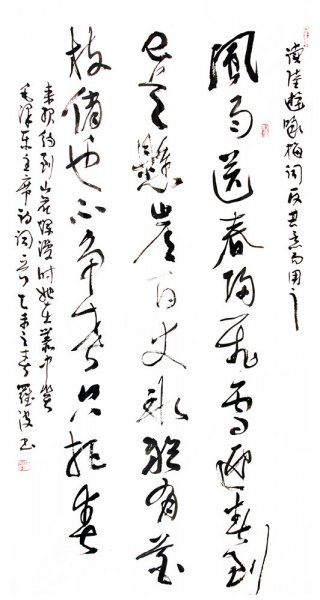 读陸游咏梅词反其意而用之
風雨送春归飞雪迎春到
已是懸崖百丈冰犹有花
枝俏也不争春只把春
来报待到山花烂漫时她在叢中笑
毛泽东主席诗词一首乙未之春羅书